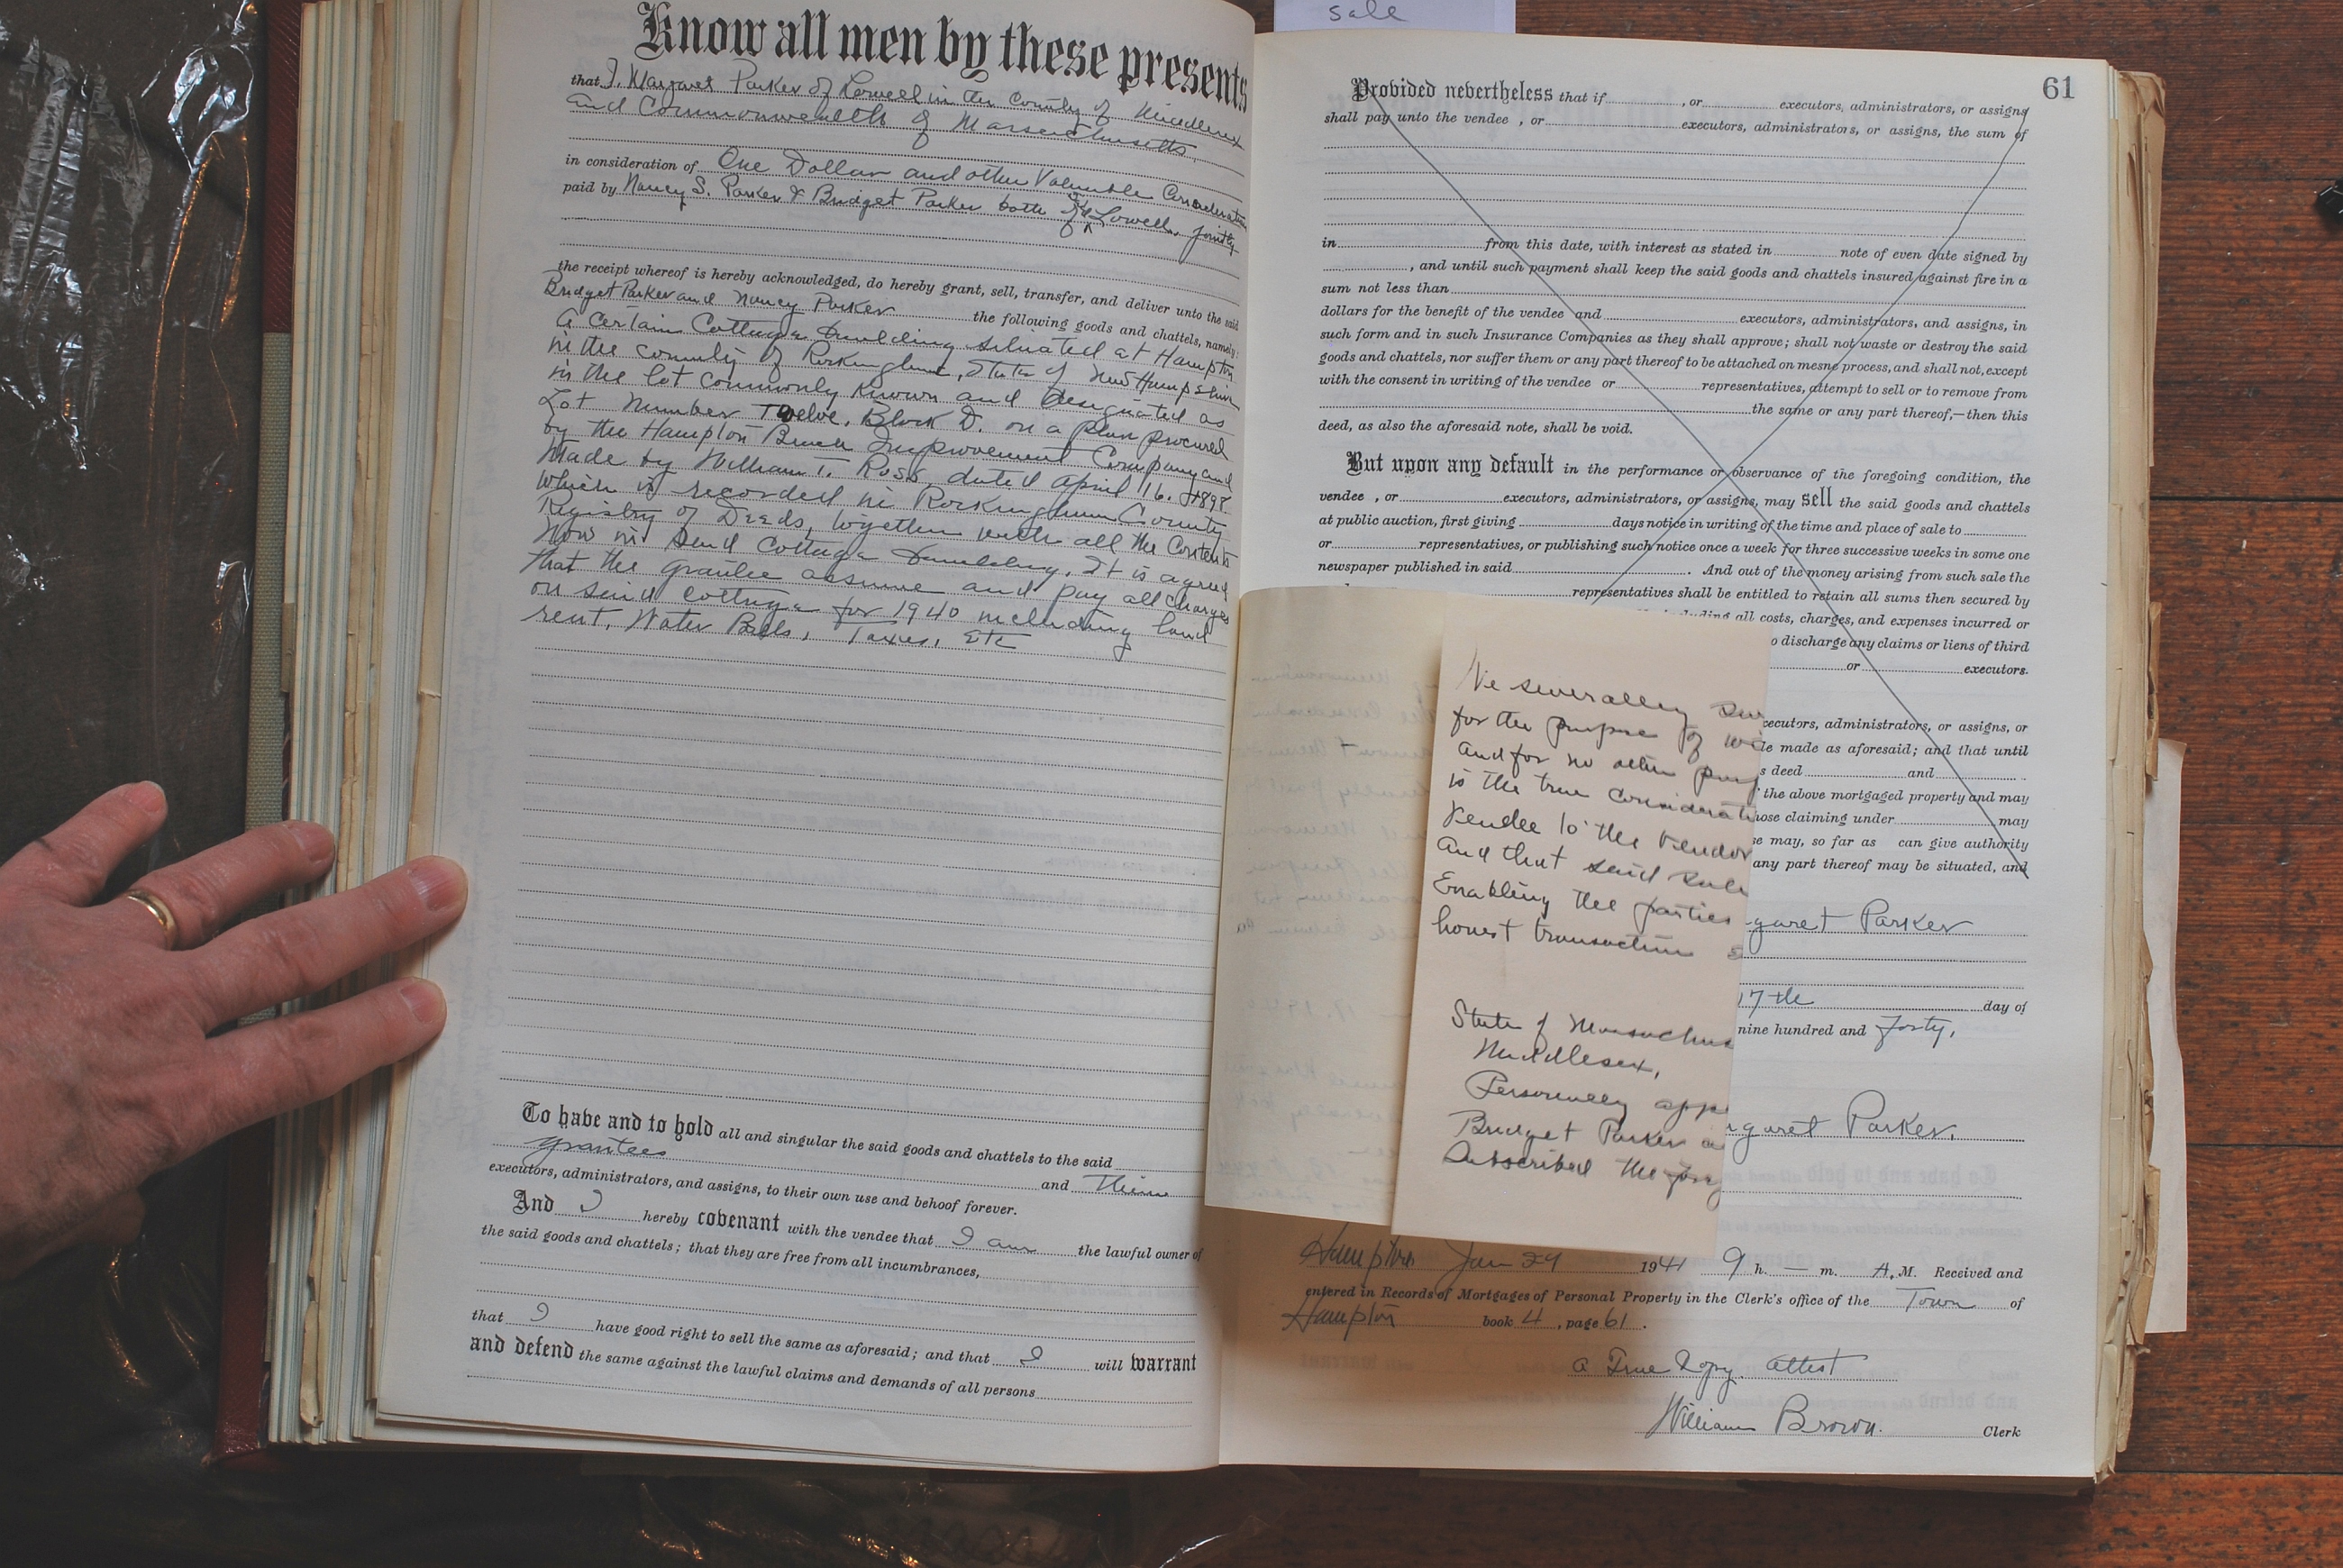 sale
Know all men by these presents
that I, Margaret Parker of Lowell in the County of Middlesex
and Commonwealth of Massachusetts.
in consideration of One Dollar and other Valuable Consideration
paid by Nancy S. Parker & Bridget Parker both of Lowell, jointly
the receipt whereof is hereby acknowledged, do hereby grant, sell, transfer, and deliver unto the said
Bridget Parker and Nancy Parker the following goods and chattels, namely:
A certain Cottage building situated at Hampton
in the county of Rockingham, State of New Hampshire
in the lot commonly known and designated as
Lot Number Twelve, Block D. on a plan procured
by the Hampton Beach Improvement Company and
Made by William T. Ross dated April 16. 1898
which is recorded in Rockingham County
Registry of Deeds, together with all the Contents
Now in said Cottage building. It is agreed
that the grantee assume and pay all charges
on said cottage for 1940 including land
rent, Water Bills, Taxes, Etc
To have and to hold all and singular the said goods and chattels to the said
grantees and their
executors, administrators, and assigns, to their own use and behoof forever.
And I hereby covenant with the vendee that I am the lawful owner of
the said goods and chattels; that they are free from all incumbrances,
that I have good right to sell the same as aforesaid; and that I will warrant
and defend the same against the lawful claims and demands of all persons
61
Provided nevertheless that if , or executors, administrators, or assigns
shall pay unto the vendee , or executors, administrators, or assigns, the sum of
in from this date, with interest as stated in note of even date signed by
, and until such payment shall keep the said goods and chattels insured against fire in a
sum not less than
dollars for the benefit of the vendee and executors, administrators, and assigns, in
such form and in such Insurance Companies as they shall approve; shall not waste or destroy the said
goods and chattels, nor suffer them or any part thereof to be attached on mesne process, and shall not, except
with the consent in writing of the vendee or representatives, attempt to sell or to remove from
the same or any part thereof,—then this
deed, as also the aforesaid note, shall be void.
But upon any default in the performance or observance of the foregoing condition, the
vendee , or executors, administrators, or assigns, may sell the said goods and chattels
at public auction, first giving days notice in writing of the time and place of sale to
or representatives, or publishing such notice once a week for three successive weeks in some one
newspaper published in said . And out of the money arising from such sale the
representatives shall be entitled to retain all sums then secured by
including all costs, charges, and expenses incurred or
o discharge any claims or liens of third
or executors.
executors, administrators, or assigns, or
le made as aforesaid; and that until
s deed and
the above mortgaged property and may
hose claiming under may
se may, so far as can give authority
any part thereof may be situated, and
We severally
for the purpose of
and for no other
is the true
Vendee to the Vendor
And that said Sale
Enabling the parties
honest transaction
State of
Middlesex,
Personally app
Bridget Parker
Subscribed the
garet Parker
17 the day of
nine hundred and forty,
rgaret Parker.
Hampton Jan 29 1941 9 h. — m. A.M. Received and
entered in Records of Mortgages of Personal Property in the Clerk's office of the Town of
Hampton book 4 , page 61 .
A True Copy. Attest
William Brown. Clerk